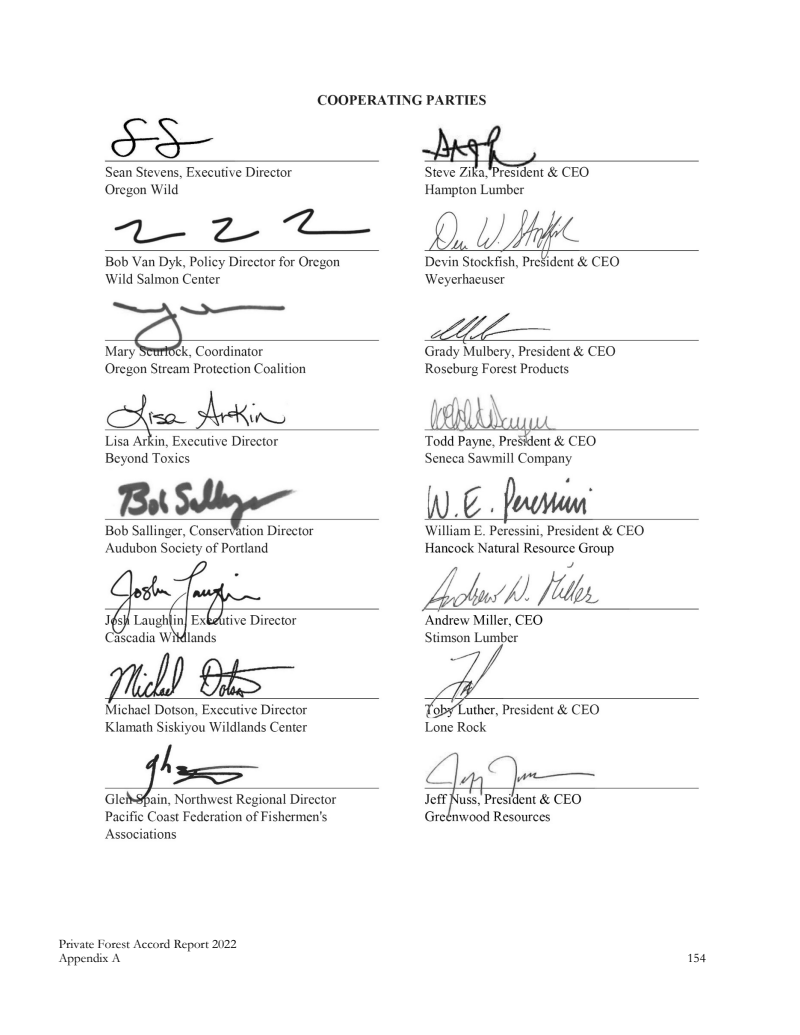 COOPERATING PARTIES
Sean Stevens, Executive Director
Oregon Wild
Bob Van Dyk, Policy Director for Oregon
Wild Salmon Center
Mary Scurlock, Coordinator
Oregon Stream Protection Coalition
Lisa Arkin
Lisa Arkin, Executive Director
Beyond Toxics
Bob Sallinger
Bob Sallinger, Conservation Director
Audubon Society of Portland
Josh Laughlin
Josh Laughlin, Executive Director
Cascadia Wildlands
Michael Dotson
Michael Dotson, Executive Director
Klamath Siskiyou Wildlands Center
Glen Spain, Northwest Regional Director
Pacific Coast Federation of Fishermen's
Associations
Steve Zika, President & CEO
Hampton Lumber
Devin Stockfish, President & CEO
Weyerhaeuser
Grady Mulbery, President & CEO
Roseburg Forest Products
Todd Payne, President & CEO
Seneca Sawmill Company
W. E. Peressini
William E. Peressini, President & CEO
Hancock Natural Resource Group
Andrew W. Miller
Andrew Miller, CEO
Stimson Lumber
Toby Luther, President & CEO
Lone Rock
Jeff Nuss, President & CEO
Greenwood Resources
Private Forest Accord Report 2022
Appendix A
154